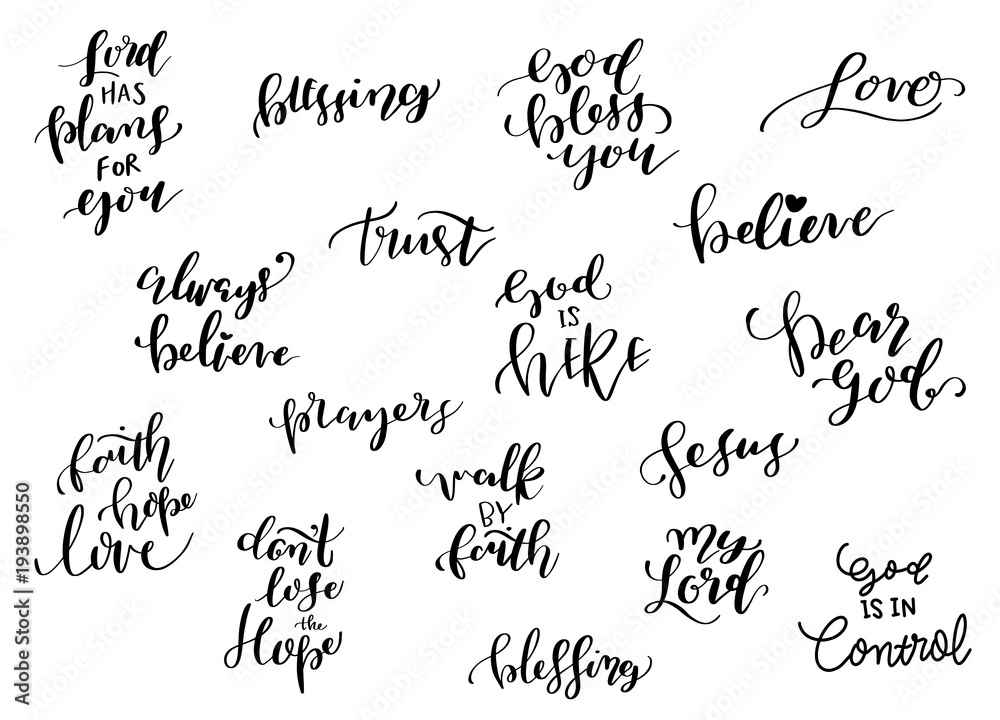 Lord
HAS
plans
FOR
you
blessing
God
bless
you
Love
trust
believe
always
believe
God
IS
HERE
Dear
God
prayers
faith
hope
love
walk
BY
faith
Jesus
don't
lose
the
Hope
my
Lord
God
IS IN
Control
blessing
Adobe Stock | #193898550